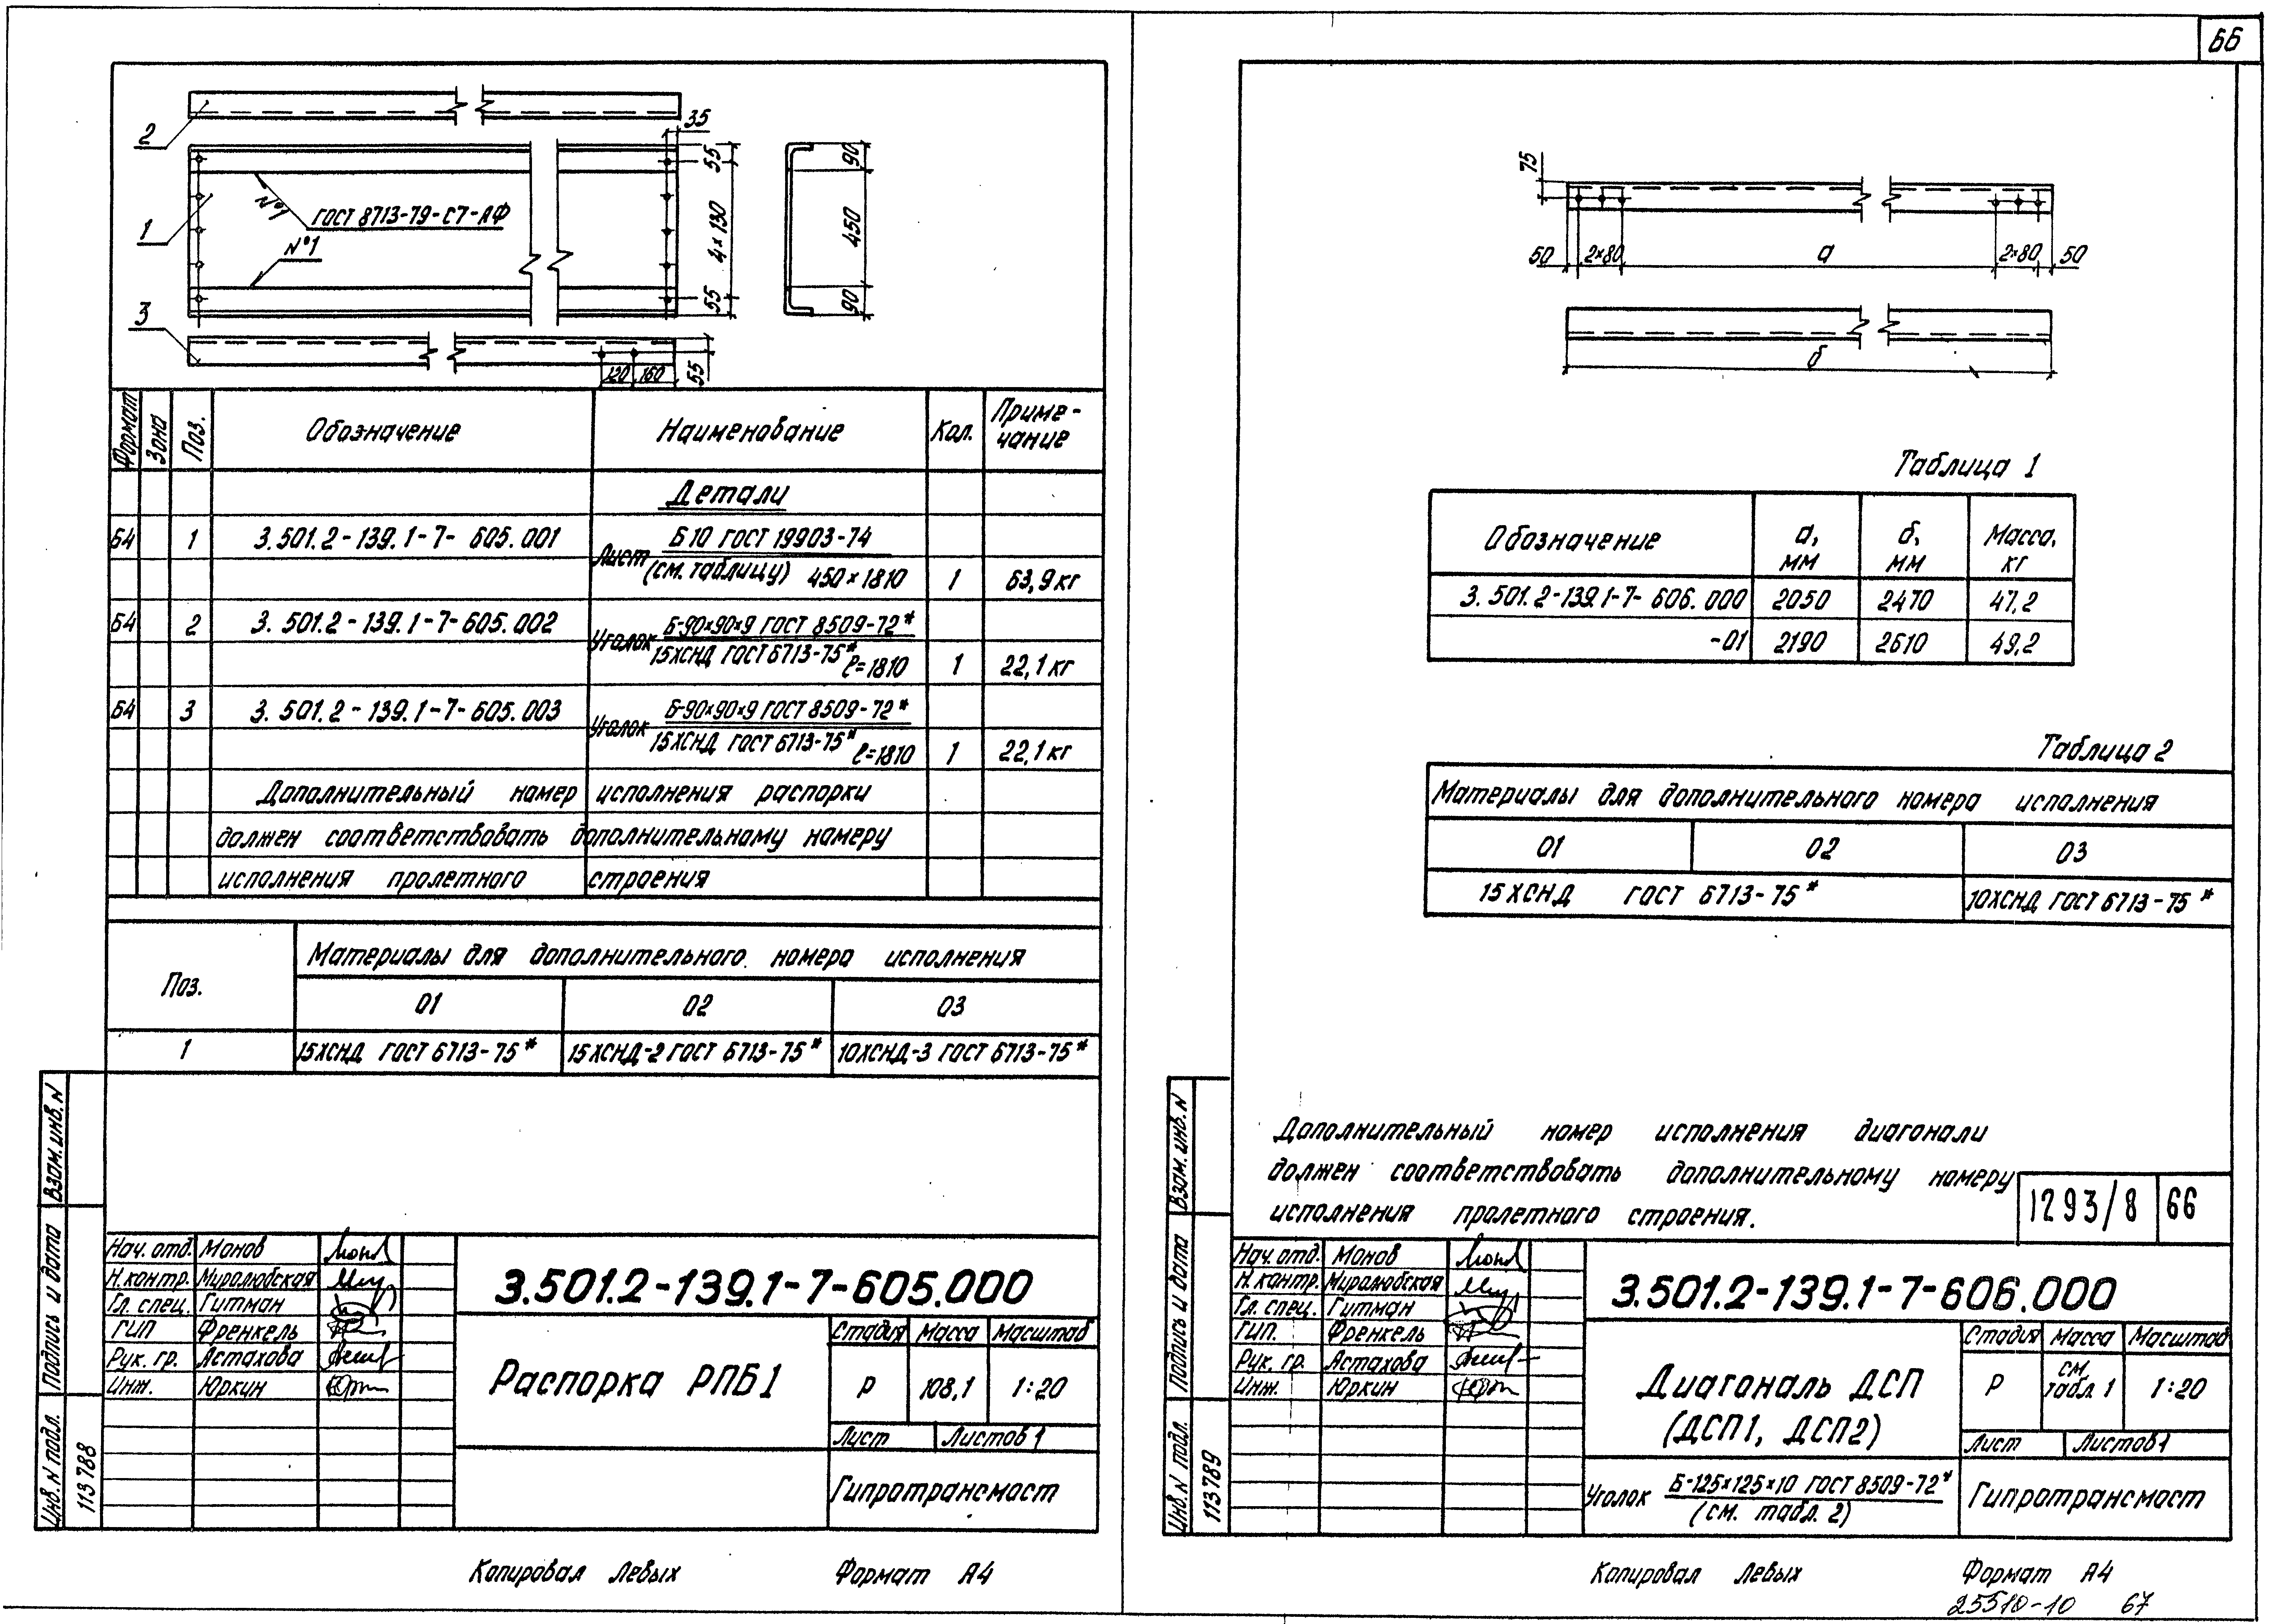 66
2
35
55
4×130
55
1
№1
ГОСТ 8713-79-С7-АФ
№1
90
450
90
3
120 160
55
Формат Зона Поз. Обозначение Наименование Кол. Приме-
чание
Детали
Б4 1 3.501.2-139.1-7-605.001 Лист Б10 ГОСТ 19903-74
(см. таблицу) 450×1810 1 63,9 кг
Б4 2 3.501.2-139.1-7-605.002 Уголок Б-90×90×9 ГОСТ 8509-72*
15ХСНД ГОСТ 6713-75* ℓ=1810 1 22,1 кг
Б4 3 3.501.2-139.1-7-605.003 Уголок Б-90×90×9 ГОСТ 8509-72*
15ХСНД ГОСТ 6713-75* ℓ=1810 1 22,1 кг
Дополнительный номер исполнения распорки
должен соответствовать дополнительному номеру
исполнения пролетного строения
Поз. Материалы для дополнительного номера исполнения
01 02 03
1 15ХСНД ГОСТ 6713-75* 15ХСНД-2 ГОСТ 6713-75* 10ХСНД-3 ГОСТ 6713-75*
Взам. инв. N
Подпись и дата
Инв. N подл.
113788
Нач. отд. Монов
Н. контр. Миролюбская
Гл. спец. Гитман
ГИП Френкель
Рук. гр. Астахова
Инж. Юркин
3.501.2-139.1-7-605.000
Распорка РПБ1
Стадия Масса Масштаб
Р 108,1 1:20
Лист Листов 1
Гипротрансмост
Копировал Левых Формат А4
75
50 2×80 а 2×80 50
б
Таблица 1
Обозначение а, мм б, мм Масса, кг
3.501.2-139.1-7-606.000 2050 2470 47,2
-01 2190 2610 49,2
Таблица 2
Материалы для дополнительного номера исполнения
01 02 03
15ХСНД ГОСТ 6713-75* 10ХСНД ГОСТ 6713-75*
Дополнительный номер исполнения диагонали
должен соответствовать дополнительному номеру
исполнения пролетного строения.
1293/8 66
Взам. инв. N
Подпись и дата
Инв. N подл.
113789
Нач. отд. Монов
Н. контр. Миролюбская
Гл. спец. Гитман
ГИП. Френкель
Рук. гр. Астахова
Инж. Юркин
3.501.2-139.1-7-606.000
Диагональ ДСП
(ДСП1, ДСП2)
Стадия Масса Масштаб
Р см. табл. 1 1:20
Лист Листов 1
Уголок Б-125×125×10 ГОСТ 8509-72*
(см. табл. 2)
Гипротрансмост
Копировал Левых Формат А4
25510-10 67